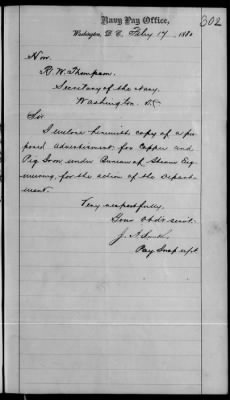 302
Navy Pay Office,
Washington, D. C. Feby 17 1880
Hon.
R. W. Thompson.
Secretary of the Navy.
Washington. D.C.
Sir
I enclose herewith copy of a pro
posed advertisement for Copper and
Pig Iron under Bureau of Steam Eng
ineering, for the action of the Depart-
ment.
Very respectfully.
Your obdt servt.
J. A. Smith
Pay